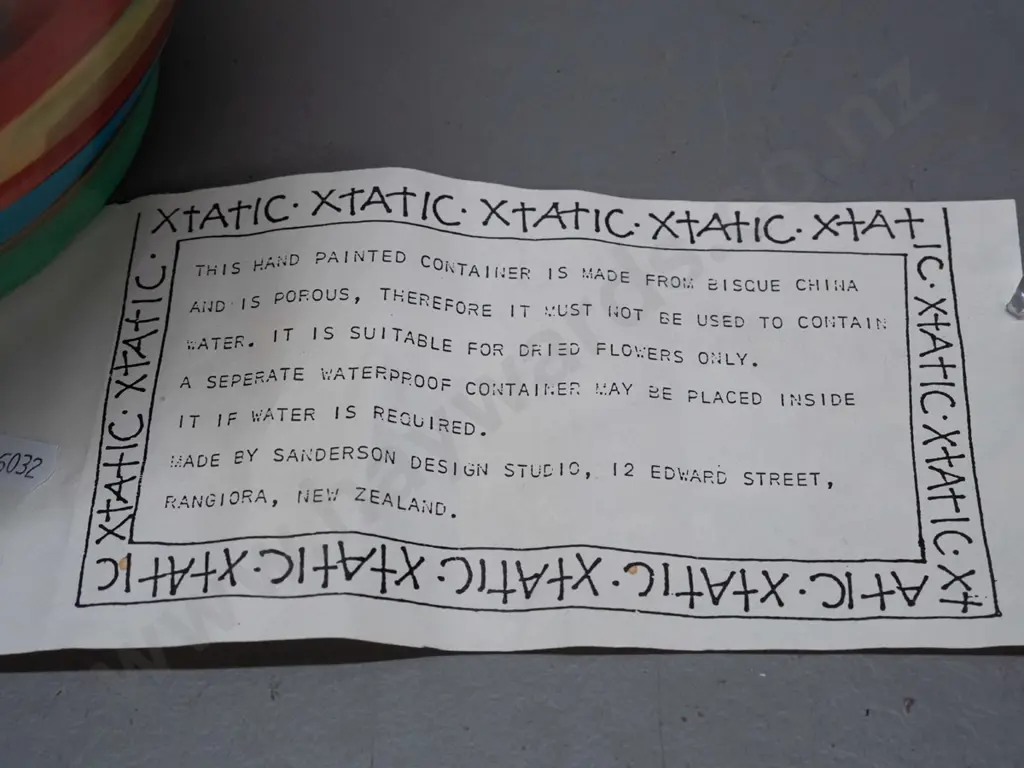 XtAtIC · XtAtIC · XtAtIC · XtAtIC · XtAt
IC · XtAtIC · XtAtIC · Xt
AtIC · XtAtIC · XtAtIC · XtAtIC · XtAtIC
XtAtIC · XtAtIC ·
THIS HAND PAINTED CONTAINER IS MADE FROM BISQUE CHINA
AND IS POROUS, THEREFORE IT MUST NOT BE USED TO CONTAIN
WATER. IT IS SUITABLE FOR DRIED FLOWERS ONLY.
A SEPERATE WATERPROOF CONTAINER MAY BE PLACED INSIDE
IT IF WATER IS REQUIRED.
MADE BY SANDERSON DESIGN STUDIO, 12 EDWARD STREET,
RANGIORA, NEW ZEALAND.
6032
www.haywards.co.nz